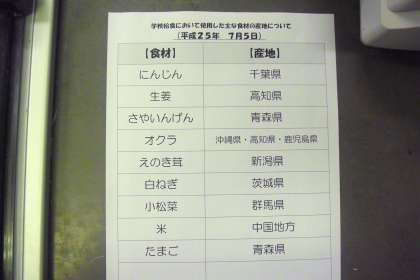 学校給食において使用した主な食材の産地について
（平成２５年　７月５日）
【食材】 【産地】
にんじん 千葉県
生姜 高知県
さやいんげん 青森県
オクラ 沖縄県・高知県・鹿児島県
えのき茸 新潟県
白ねぎ 茨城県
小松菜 群馬県
米 中国地方
たまご 青森県